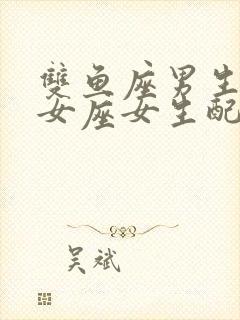 雙鱼座男生
女座女生配
吴斌